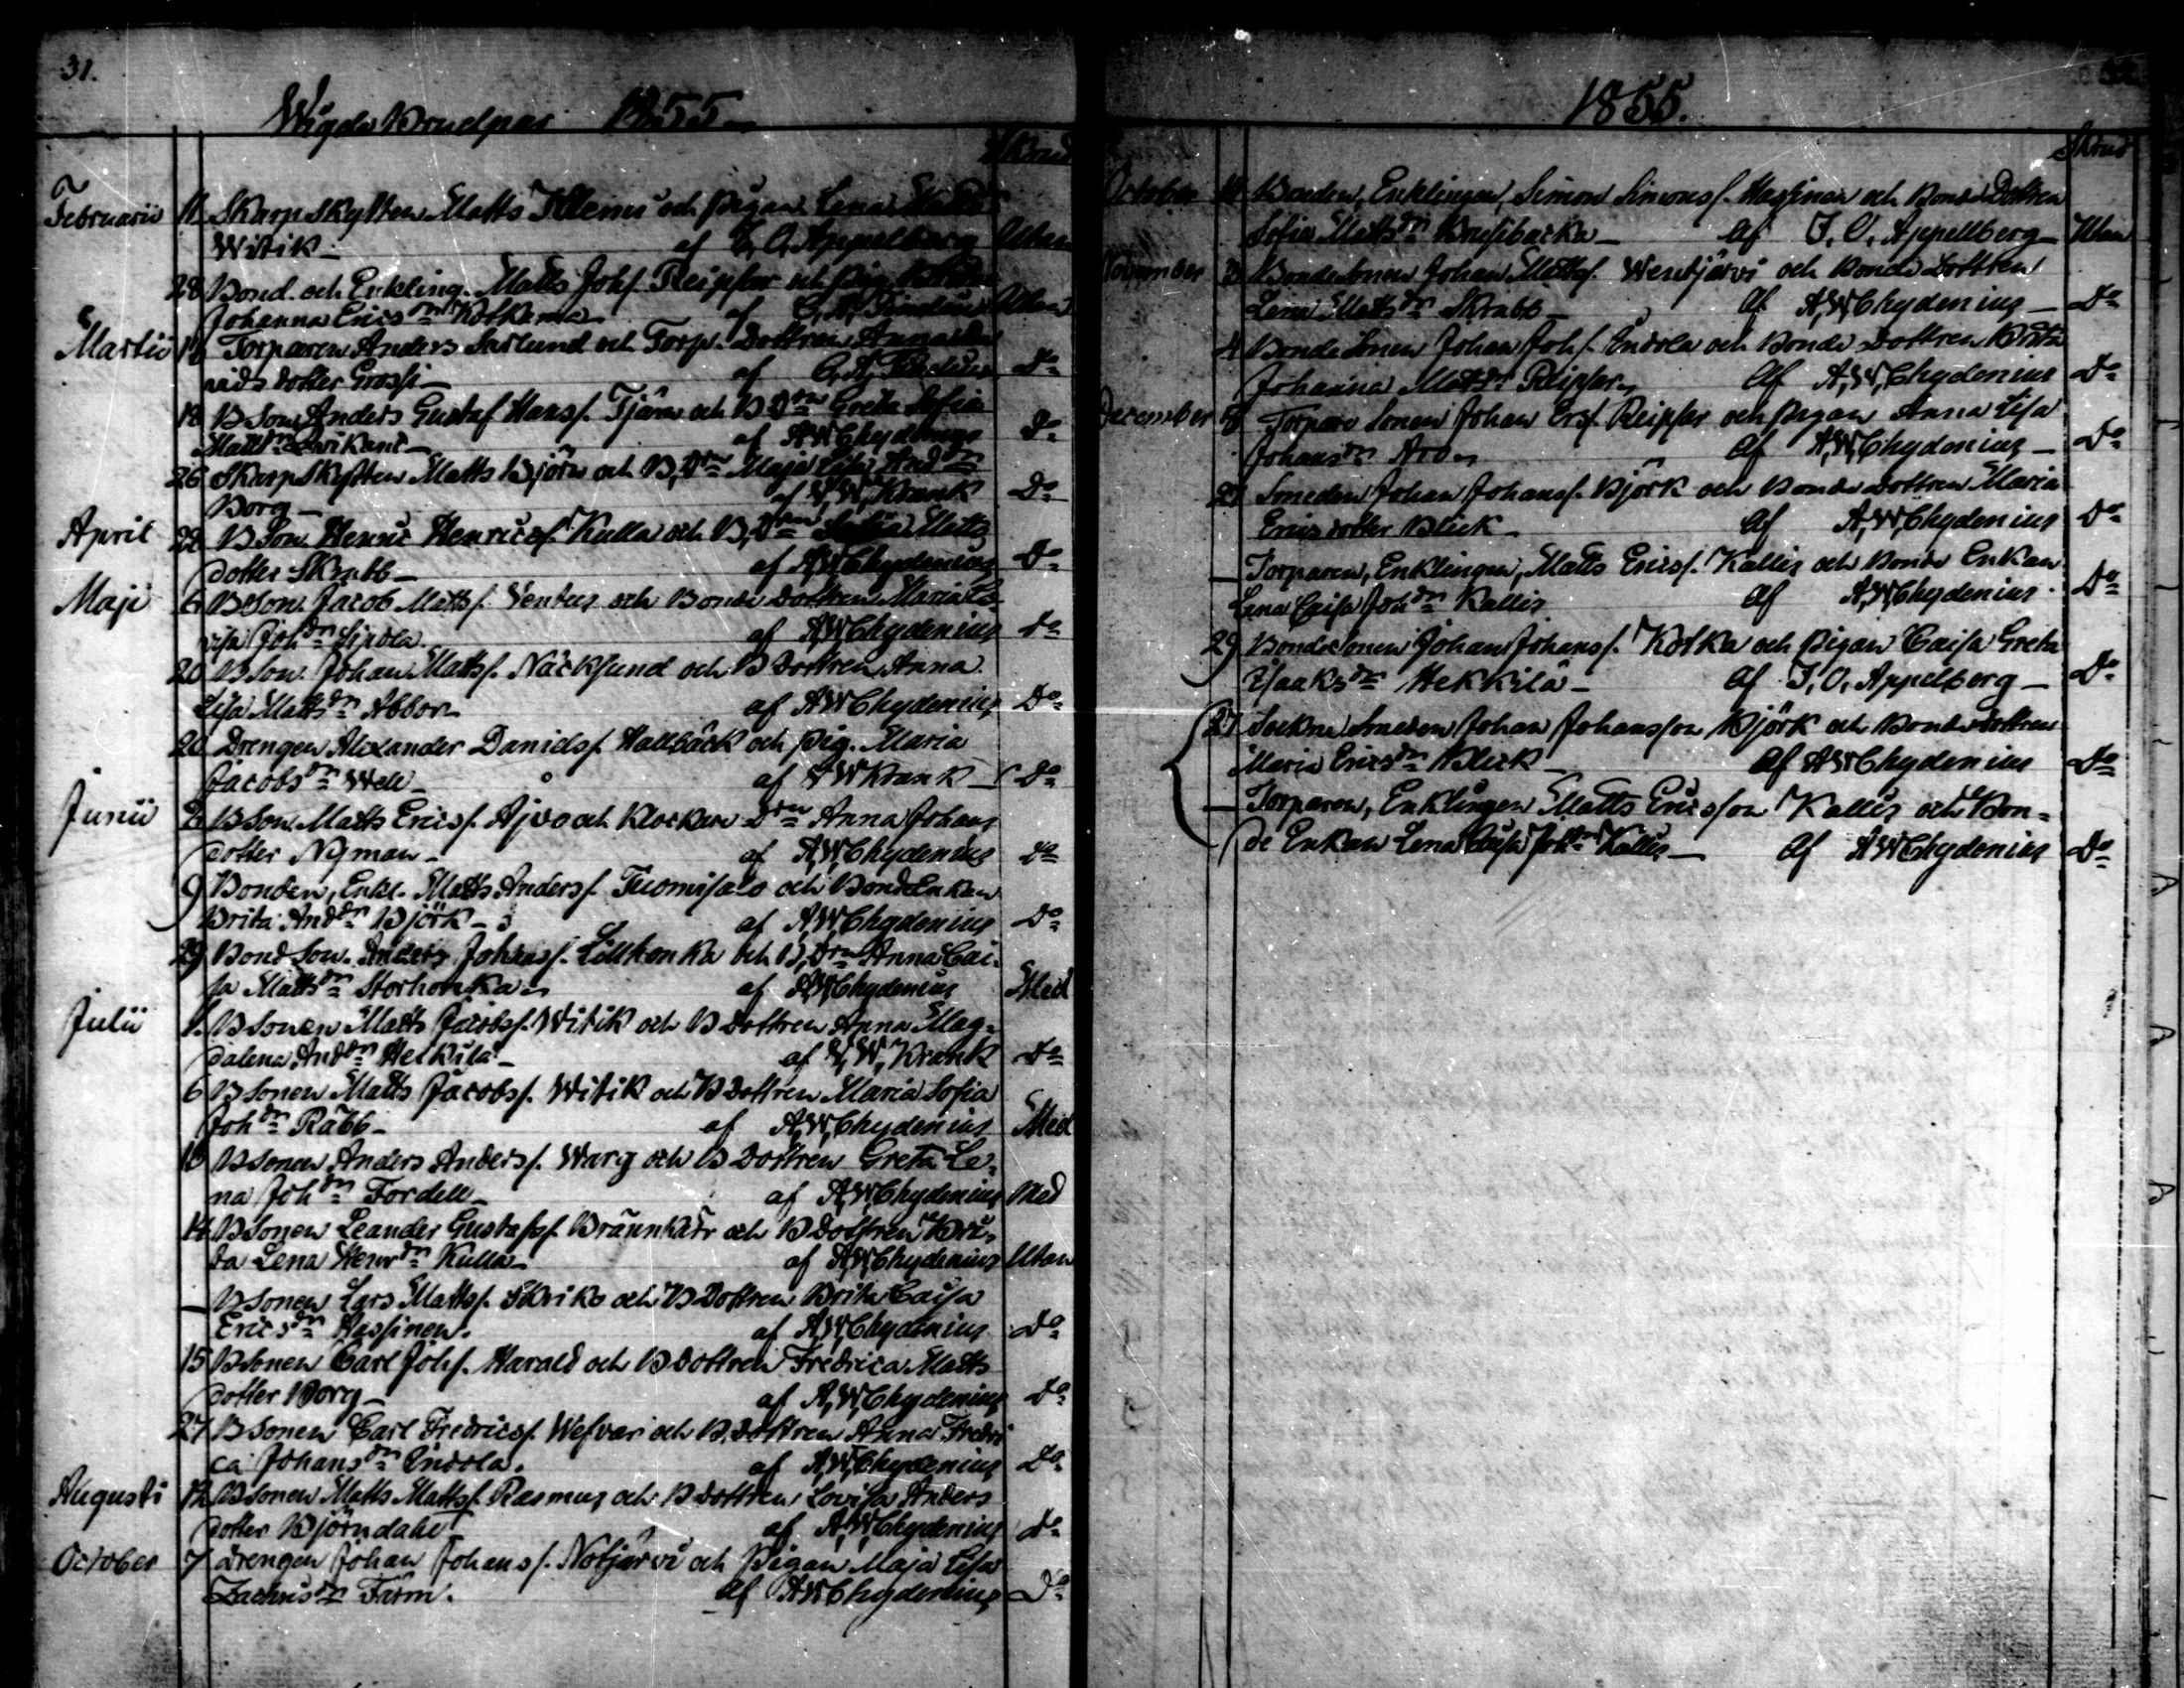 31.
Wigde Brudpar 1855.
Skrud
Februarii 11 Skarp Skytten Matts Klemis och pigan Lena Matts
Witik af J. O. Appelberg Utan
28 Bond. och Enkling. Matts Johs. Reipsar och pig.
Johanna Ericsdn Kotkama af Utan
Martii 18 Torparen Anders Sarlund och Torp. Dottren Anna
rids dotter Grossi af Do
18 B Son Anders Gustaf Hanss. Tjäru och B Drn Greta Sofia
Mattsdn Lerikant af A W Chydenius Do
26 Skarp Skytten Matts Björn och B, Drn Maja Lisa Anddn
Borg af A, W, Krank Do
April 22 B Son Henric Henricss. Kulla och B, Drn Sofia Matts
dotter Skrabb af A W Chydenius Do
Maji 6 B Son. Jacob Mattss. Ventus och Bonde dottren Maria Ca
isa Johdn Sipola. af A W Chydenius Do
20 B Son. Johan Mattss. Näcksund och B dottren Anna
Lisa Mattsdn Abbor af A W Chydenius Do
26 Drengen Alexander Daniels. Hallbäck och pig. Maria
Jacobsdn Well af A W Krank Do
Junii 2 B Son. Matts Erics. Ajvo och Klockare Drn Anna Johans
dotter Nyman af A, W, Chydenius Do
9 Bonden, Enkl. Matts Anderss. Tuomisalo och Bonde Enkan
Brita Anddn Björk af A, W, Chydenius Do
29 Bond Son. Anders Johanss. Lillhonka och B, Drn Anna Cai-
sa Mattsdn Storhonka af A W Chydenius Med
Julii 1. B Sonen Matts Jacobss. Witik och B dottren Anna Mag-
dalena Anddn Heikkilä af A, W, Krank Do
6 B Sonen Matts Jacobss. Witik och B dottren Maria Sofia
Johdn Rabb af A, W, Chydenius Med
10 B Sonen Anders Anderss. Warg och B dottren Greta Le-
na Johdn Fordell af A, W, Chydenius Med
14 B Sonen Leander Gustafss. Brännkärr och B dottren Bri-
ta Lena Henrdn Kulla af A, W, Chydenius Utan
— B Sonen Lars Mattss. Skriko och B Dottren Brita Caisa
Ericsdn Hassinen. af A, W, Chydenius Do
15 B Sonen Carl Johs. Harald och B dottren Fredrica Matts
dotter Borg af A, W, Chydenius Do
27 B Sonen Carl Fredricss. Wefvar och B, dottren Anna Fredri
ca Johansdn Indola. af A, W, Chydenius Do
Augusti 12 B Sonen Matts Mattss. Rasmus och B dottren, Lovisa Anders
dotter Björndahl af A, W, Chydenius Do
October 7 Drengen Johan Johanss. Notjärvi och Pigan Maja Lisa
Zachrisdn Farm. af A W Chydenius Do
1855.
Skrud
October 14 Bonden, Enklingen, Simon Simonss. Hassinen och Bonde Dottren
Sofia Mattsdn Brussbacka af J. O. Appelberg Utan
November 3 Bonde Sonen Johan Mattss. Wentjärvi och Bonde Dottren
Lena Mattsdn Skrabb af A, W Chydenius Do
4 Bonde Sonen Johan Johs. Indola och Bonde Dottren Brita
Johanna Mattsdn Reipsar af A, W, Chydenius Do
December 8 Torpare Sonen Johan Erss. Reipsar och pigan Anna Lisa
Johansdn Aro af A, W, Chydenius Do
27 Smeden Johan Johanss. Björk och Bonde dottren Maria
Erics dotter Bleck af A, W, Chydenius Do
— Torparen, Enklingen, Matts Ericss. Kallis och Bonde Enkan
Lena Caisa Johdn Kallis af A, W Chydenius Do
29 Bonde Sonen Johan Johanss. Kotka och pigan Caisa Greta
Isaaksdn Hekkilä af J. O. Appelberg Do
27 Sockne Smeden Johan Johansson Björk och Bonde dottren
Maria Ericsdn Bleck af A W Chydenius Do
— Torparen, Enklingen Matts Ericsson Kallis och Bon-
de Enkan Lena Caisa Johdn Kallis af A W Chydenius Do